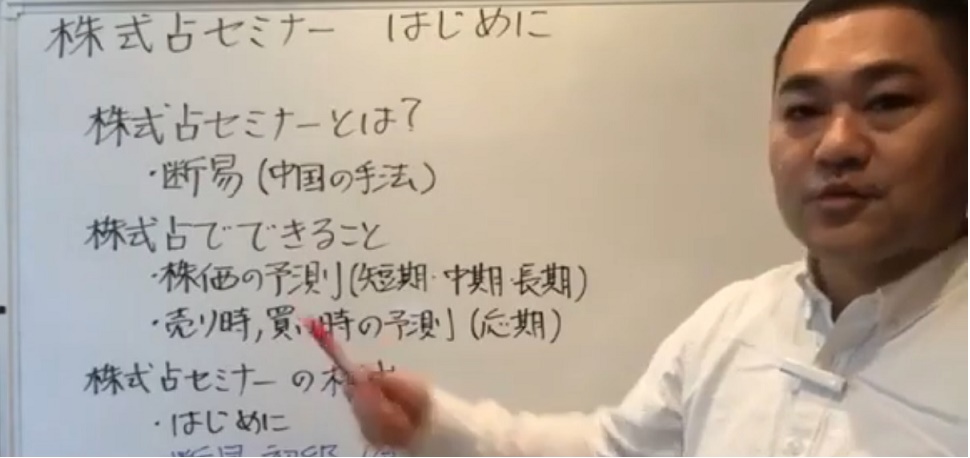 株式占セミナー はじめに
株式占セミナーとは?
・断易(中国の手法)
株式占でできること
・株価の予測(短期・中期・長期)
・売り時,買い時の予測(応期)
株式占セミナーの
・はじめに